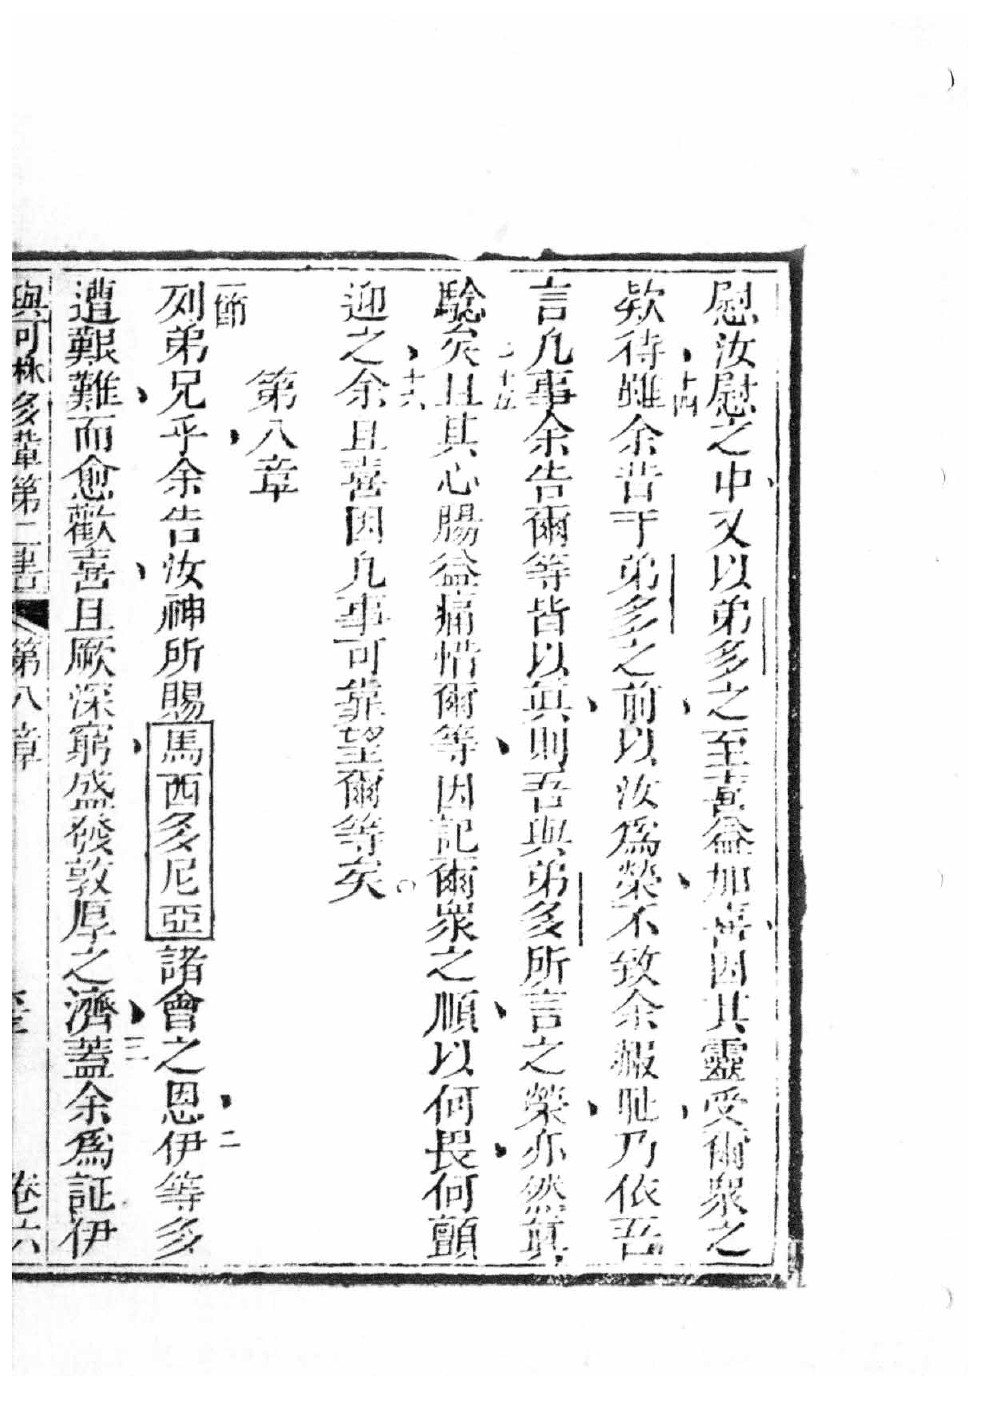 慰汝慰之中又以弟多之至喜益加喜因其靈受爾眾之
欵待十四雖余昔于弟多之前以汝為榮不致余赧耻乃依吾
言凡事余告爾等皆以眞則吾與弟多所言之榮亦然眞
騐矣十五且其心腸益痛惜爾等因記爾眾之順以何畏何顫
迎之十六余且喜因凡事可靠望爾等矣○
第八章
一節
列弟兄乎余告汝神所賜馬西多尼亞諸會之恩二伊等多
遭艱難而愈歡喜且厥深窮盛發敦厚之濟三蓋余為証伊
與可林多輩第二書 第八章 卷六